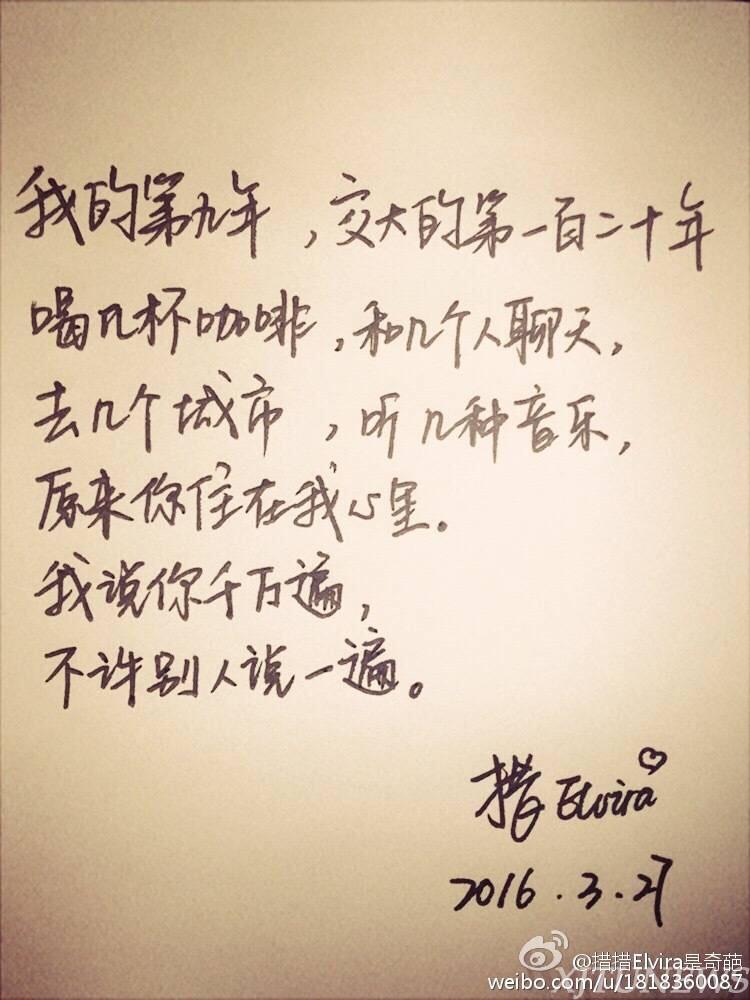 我的第九年，交大的第一百二十年
喝几杯咖啡，和几个人聊天，
去几个城市，听几种音乐，
原来你住在我心里。
我说你千万遍，
不许别人说一遍。
措Elvira♡
2016.3.27
@措措Elvira是奇葩
weibo.com/u/1818360087
XJTUNEWS